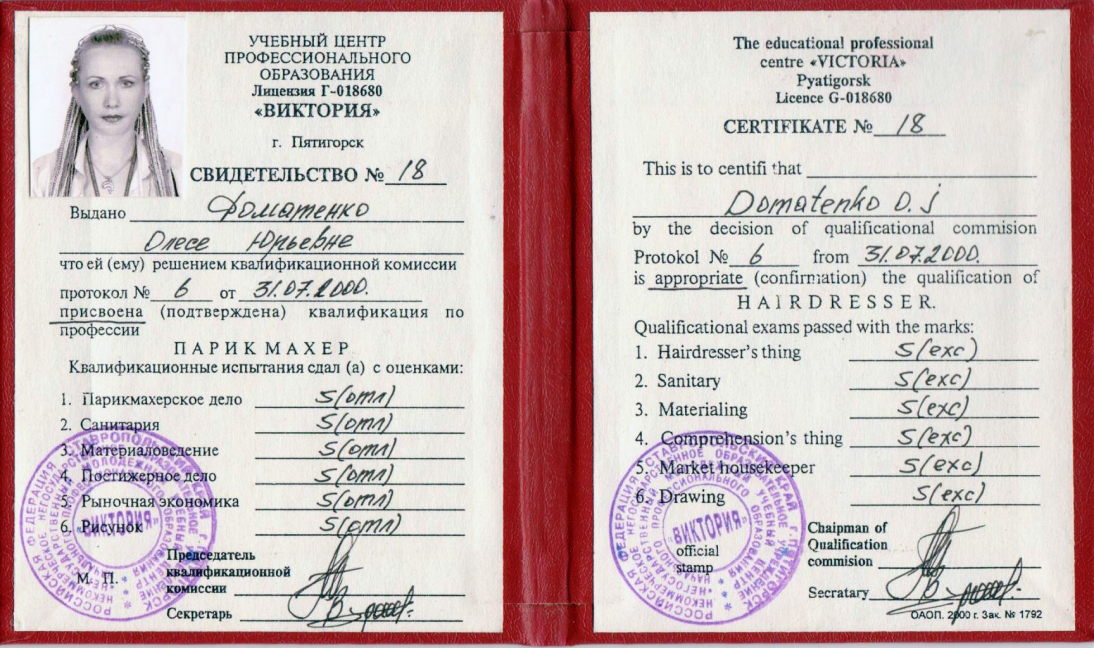 УЧЕБНЫЙ ЦЕНТР
ПРОФЕССИОНАЛЬНОГО
ОБРАЗОВАНИЯ
Лицензия Г-018680
«ВИКТОРИЯ»
г. Пятигорск
СВИДЕТЕЛЬСТВО № 18
Выдано Доматенко
Олесе Юрьевне
что ей (ему) решением квалификационной комиссии
протокол № 6 от 31.07.2000.
присвоена (подтверждена) квалификация по
профессии
ПАРИКМАХЕР
Квалификационные испытания сдал (а) с оценками:
1. Парикмахерское дело 5(отл)
2. Санитария 5(отл)
3. Материаловедение 5(отл)
4. Постижерное дело 5(отл)
5. Рыночная экономика 5(отл)
6. Рисунок 5(отл)
«ВИКТОРИЯ»
М. П.
Председатель
квалификационной
комиссии
Секретарь
The educational professional
centre «VICTORIA»
Pyatigorsk
Licence G-018680
CERTIFIKATE № 18
This is to certifi that
Domatenko O.j
by the decision of qualificational commision
Protokol № 6 from 31.07.2000.
is appropriate (confirmation) the qualification of
HAIRDRESSER.
Qualificational exams passed with the marks:
1. Hairdresser's thing 5(exc)
2. Sanitary 5(exc)
3. Materialing 5(exc)
4. Comprehension's thing 5(exc)
5. Market housekeeper 5(exc)
6. Drawing 5(exc)
«ВИКТОРИЯ»
official
stamp
Chaipman of
Qualification
commision
Secratary
ОАОП. 2000 г. Зак. № 1792